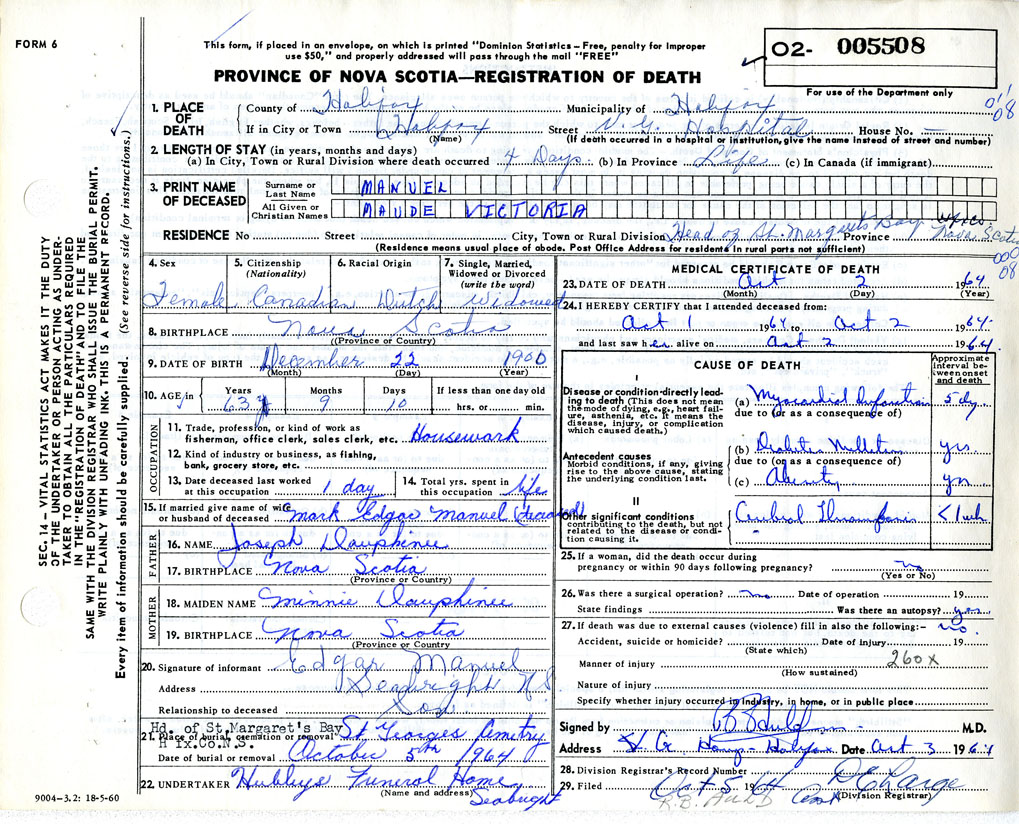 FORM 6
This form, if placed in an envelope, on which is printed "Dominion Statistics — Free, penalty for improper
use $50," and properly addressed will pass through the mail "FREE"
PROVINCE OF NOVA SCOTIA—REGISTRATION OF DEATH
02- 005508
For use of the Department only
SEC. 14 — VITAL STATISTICS ACT MAKES IT THE DUTY
OF THE UNDERTAKER OR PERSON ACTING AS UNDER-
TAKER TO OBTAIN ALL THE PARTICULARS REQUIRED
IN THE "REGISTRATION OF DEATH" AND TO FILE THE
SAME WITH THE DIVISION REGISTRAR WHO SHALL ISSUE THE BURIAL PERMIT.
WRITE PLAINLY WITH UNFADING INK. THIS IS A PERMANENT RECORD.
Every item of information should be carefully supplied. (See reverse side for instructions.)
1. PLACE OF DEATH
County of Halifax Municipality of Halifax
If in City or Town Halifax Street V. G. Hospital House No. —
(Name) (If death occurred in a hospital or institution, give the name instead of street and number)
2. LENGTH OF STAY (in years, months and days)
(a) In City, Town or Rural Division where death occurred 4 Days (b) In Province Life (c) In Canada (if immigrant)
3. PRINT NAME OF DECEASED
Surname or Last Name MANUEL
All Given or Christian Names MAUDE VICTORIA
RESIDENCE No Street City, Town or Rural Division Head of St. Margrets Bay Hfx Co. Province Nova Scotia
(Residence means usual place of abode. Post Office Address for residents in rural parts not sufficient)
4. Sex Female
5. Citizenship (Nationality) Canadian
6. Racial Origin Dutch
7. Single, Married, Widowed or Divorced (write the word) Widowed
8. BIRTHPLACE Nova Scotia
(Province or Country)
9. DATE OF BIRTH December 22 1900
(Month) (Day) (Year)
10. AGE in Years 63 Months 9 Days 10 If less than one day old hrs. or min.
OCCUPATION
11. Trade, profession, or kind of work as
fisherman, office clerk, sales clerk, etc. Housework
12. Kind of industry or business, as fishing,
bank, grocery store, etc.
13. Date deceased last worked at this occupation 1 day
14. Total yrs. spent in this occupation life
15. If married give name of wife
or husband of deceased Mark Edgar Manuel (deceased)
FATHER
16. NAME Joseph Dauphinee
17. BIRTHPLACE Nova Scotia
(Province or Country)
MOTHER
18. MAIDEN NAME Minnie Dauphinee
19. BIRTHPLACE Nova Scotia
(Province or Country)
20. Signature of informant Edgar Manuel
Address Seabright N.S.
Relationship to deceased Son
Hd. of St.Margaret's Bay
21. Place of burial, cremation or removal St Georges Cemetry
H fx.Co.N.S.
Date of burial or removal October 5th 1964
22. UNDERTAKER Hubleys Funeral Home
(Name and address) Seabright
9004-3.2: 18-5-60
MEDICAL CERTIFICATE OF DEATH
23. DATE OF DEATH Oct 2 1964
(Month) (Day) (Year)
24. I HEREBY CERTIFY that I attended deceased from:
Oct 1 1964 to Oct 2 1964
and last saw her alive on Oct 2 1964
CAUSE OF DEATH
Approximate interval between onset and death
I
Disease or condition directly leading to death (This does not mean the mode of dying, e.g., heart failure, asthenia, etc. It means the disease, injury, or complication which caused death.)
(a) Myocardial Infarction 5 dy
due to (or as a consequence of)
Antecedent causes
Morbid conditions, if any, giving rise to the above cause, stating the underlying condition last.
(b) Diabetes Mellitus yrs
due to (or as a consequence of)
(c) Obesity yrs
II
Other significant conditions
contributing to the death, but not related to the disease or condition causing it.
Cerebral Thrombosis <1 wk
25. If a woman, did the death occur during
pregnancy or within 90 days following pregnancy? no
(Yes or No)
26. Was there a surgical operation? no Date of operation 19
State findings Was there an autopsy? yes
27. If death was due to external causes (violence) fill in also the following:— no
Accident, suicide or homicide? Date of Injury 19
(State which)
260x
Manner of injury
(How sustained)
Nature of injury
Specify whether injury occurred in industry, in home, or in public place
Signed by M.D.
Address V G Hosp - Halifax Date Oct 3 1964
28. Division Registrar's Record Number
29. Filed Oct 5 64 D E Large
(Division Registrar)